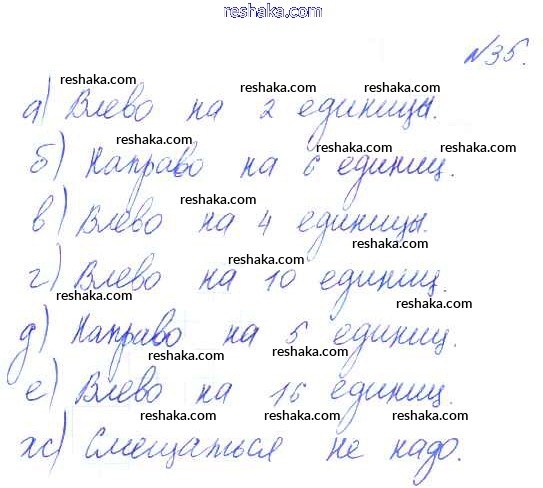 reshaka.com
№35.
reshaka.com reshaka.com reshaka.com
а) Влево на 2 единицы.
reshaka.com reshaka.com reshaka.com
б) Направо на 6 единиц.
reshaka.com
в) Влево на 4 единицы.
reshaka.com
г) Влево на 10 единиц.
reshaka.com reshaka.com
д) Направо на 5 единиц.
reshaka.com reshaka.com
е) Влево на 16 единиц.
reshaka.com reshaka.com
ж) Смещаться не надо.